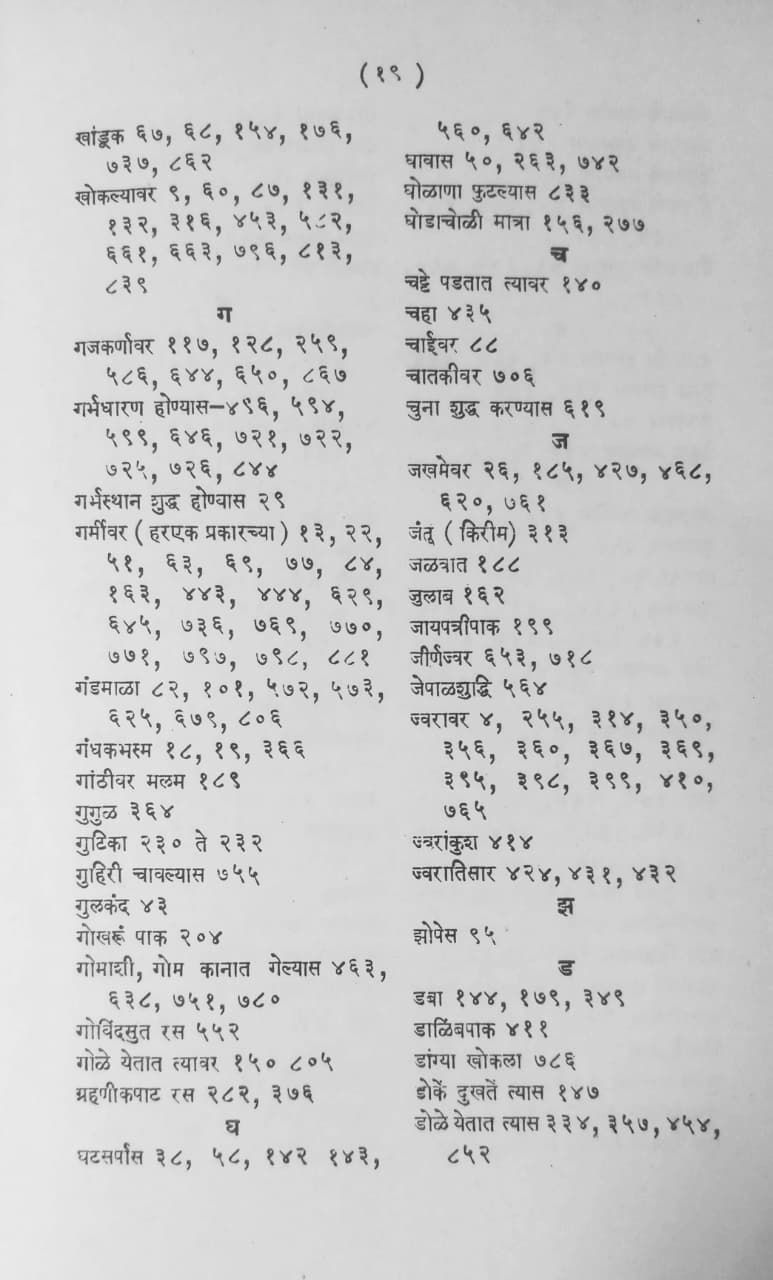 ( १९ )
खांडूक ६७, ६८, १५४, १७६,
७३७, ८६२
खोकल्यावर ९, ६०, ८७, १३१,
१३२, ३१६, ४५३, ५८२,
६६१, ६६३, ७९६, ८१३,
८३९
ग
गजकर्णावर ११७, १२८, २५९,
५८६, ६४४, ६५०, ८६७
गर्भधारण होण्यास–४९६, ५९४,
५९९, ६४६, ७२१, ७२२,
७२५, ७२६, ८४४
गर्भस्थान शुद्ध होण्यास २९
गर्मीवर ( हरएक प्रकारच्या ) १३, २२,
५१, ६३, ६९, ७७, ८४,
१६३, ४४३, ४४४, ६२९,
६४५, ७३६, ७६९, ७७०,
७७१, ७९७, ७९८, ८८१
गंडमाळा ८२, १०१, ५७२, ५७३,
६२५, ६७९, ८०६
गंधकभस्म १८, १९, ३६६
गांठीवर मलम १८९
गुगुळ ३६४
गुटिका २३० ते २३२
गुहिरी चावल्यास ७५५
गुलकंद ४३
गोखरूं पाक २०४
गोमाशी, गोम कानात गेल्यास ४६३,
६३८, ७५१, ७८०
गोविंदसुत रस ५५२
गोळे येतात त्यावर १५० ८०५
ग्रहणीकपाट रस २८२, ३७६
घ
घटसर्पास ३८, ५८, १४२ १४३,
५६०, ६४२
घावास ५०, २६३, ७४२
घोळाणा फुटल्यास ८३३
घोडाचोळी मात्रा १५६, २७७
च
चट्टे पडतात त्यावर १४०
चहा ४३५
चाईवर ८८
चातकीवर ७०६
चुना शुद्ध करण्यास ६१९
ज
जखमेवर २६, १८५, ४२७, ४६८,
६२०, ७६१
जंतु ( किरीम) ३१३
जळवात १८८
जुलाब १६२
जायपत्रीपाक १९९
जीर्णज्वर ६५३, ७१८
जेपाळशुद्धि ५६४
ज्वरावर ४, २५५, ३१४, ३५०,
३५६, ३६०, ३६७, ३६९,
३९५, ३९८, ३९९, ४१०,
७६५
ज्वरांकुश ४१४
ज्वरातिसार ४२४, ४३१, ४३२
झ
झोपेस ९५
ड
डबा १४४, १७९, ३४९
डाळिंबपाक ४११
डांग्या खोकला ७८६
डोकें दुखतें त्यास १४७
डोळे येतात त्यास ३३४, ३५७, ४५४,
८५२